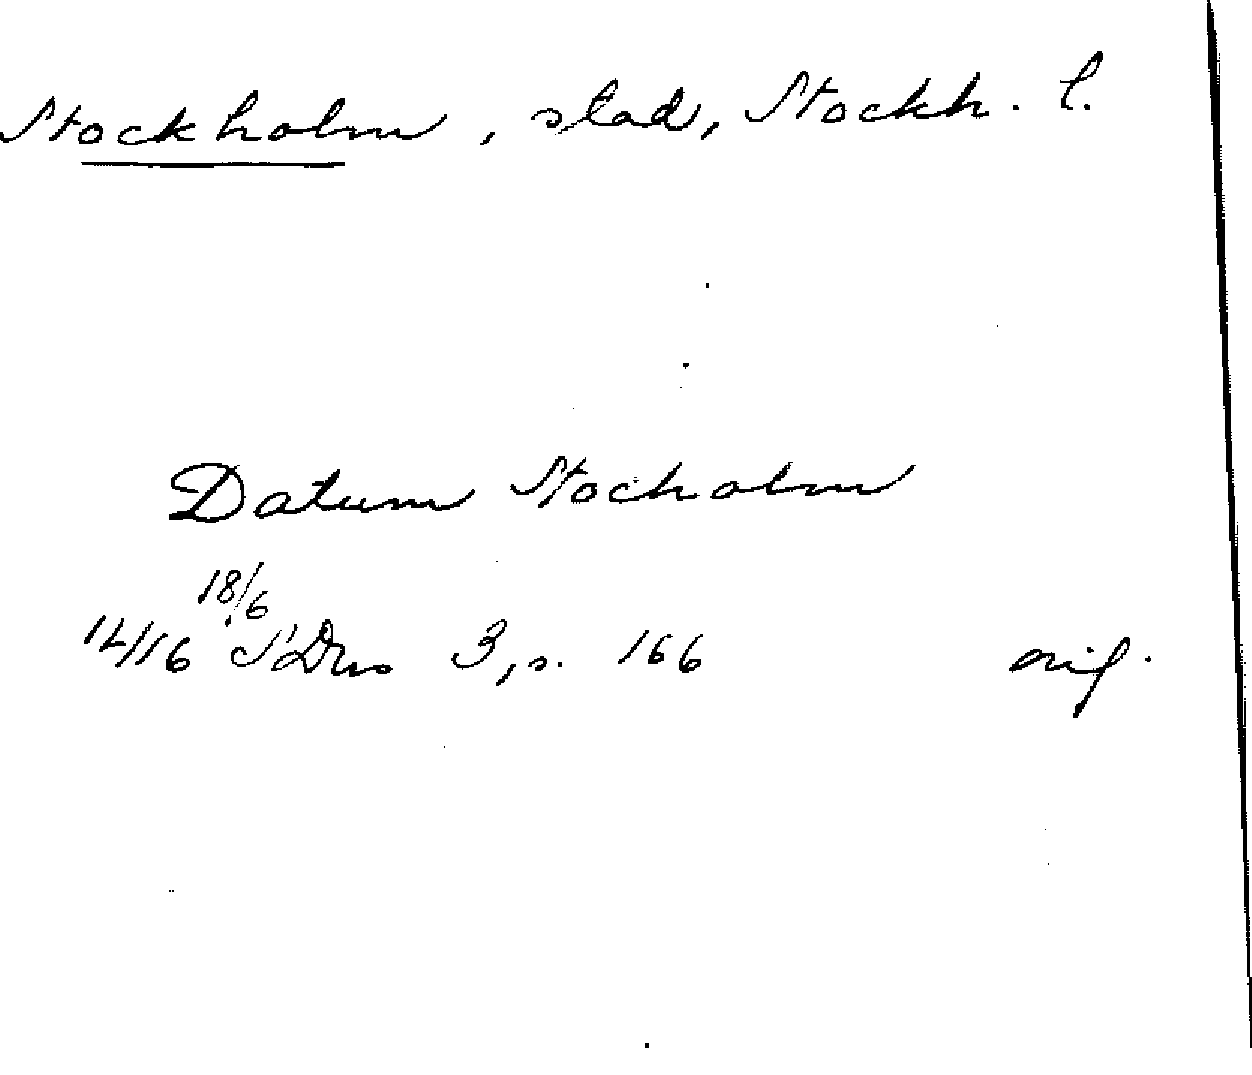 Stockholm, stad, Stockh. l.
Datum Stocholm
18/6
1416 SDns 3, s. 166 orig.